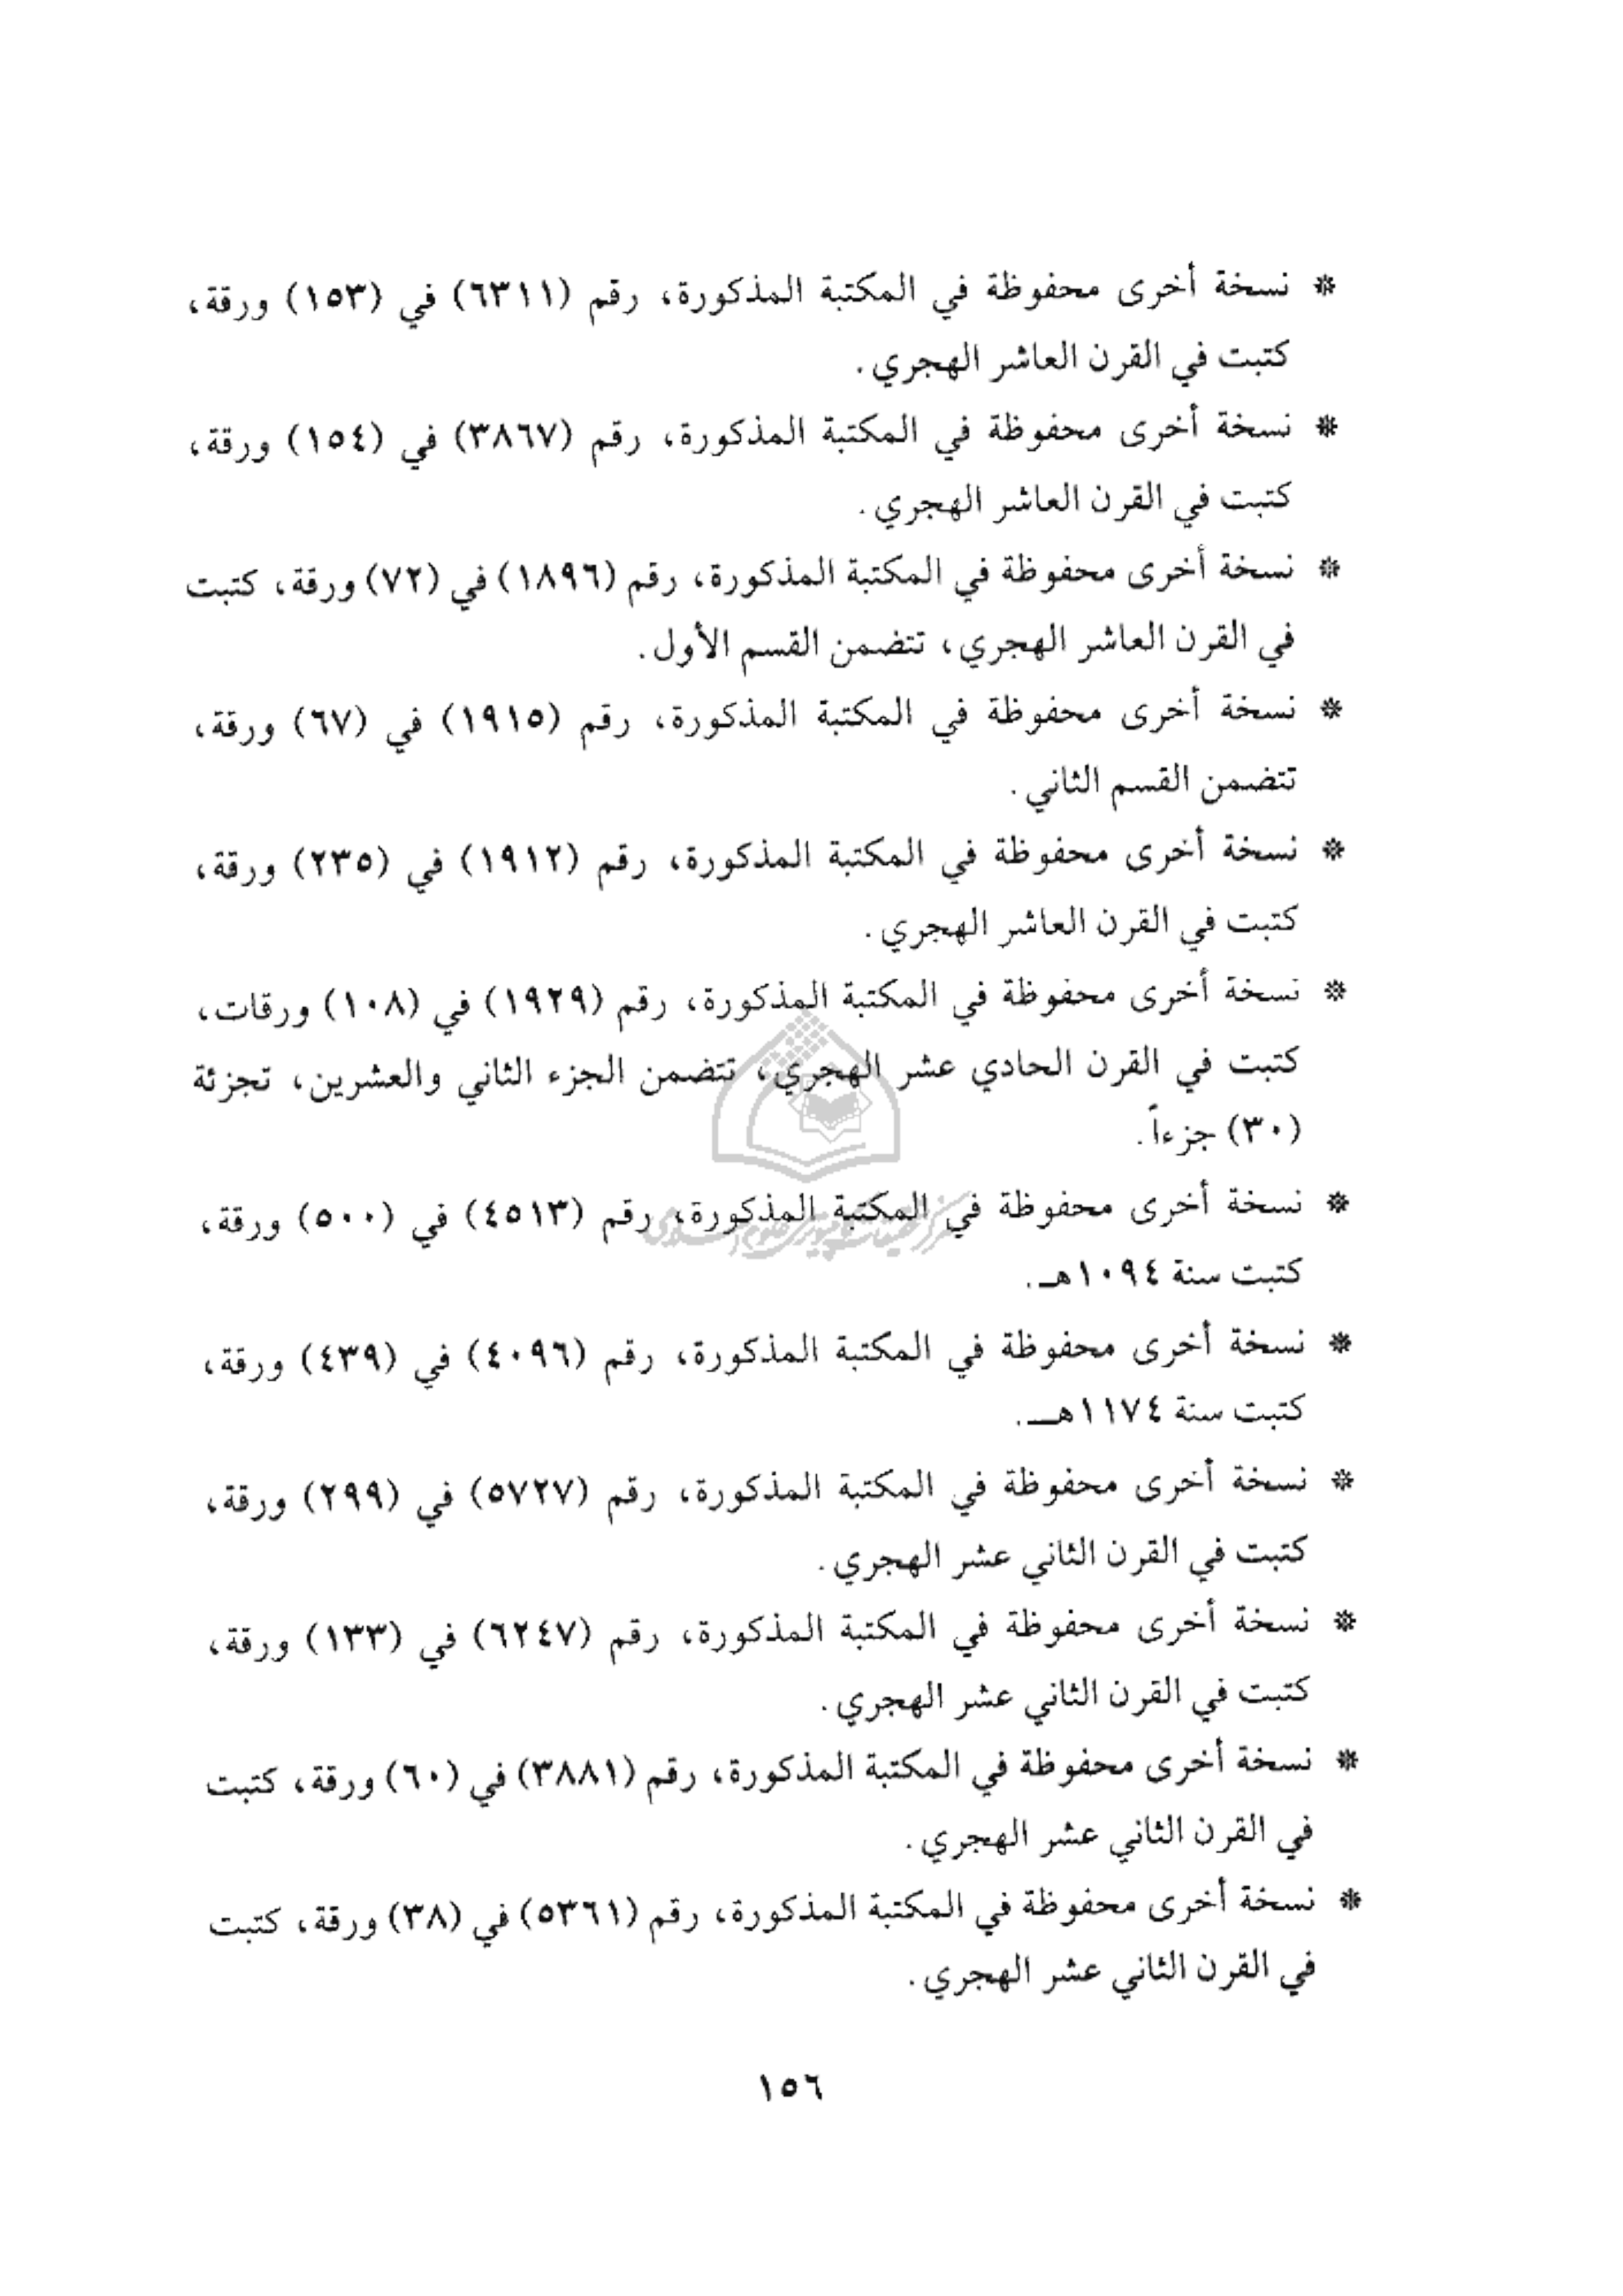 * نسخة أخرى محفوظة في المكتبة المذكورة، رقم (٦٣١١) في (١٥٣) ورقة،
كتبت في القرن العاشر الهجري.
* نسخة أخرى محفوظة في المكتبة المذكورة، رقم (٣٨٦٧) في (١٥٤) ورقة،
كتبت في القرن العاشر الهجري.
* نسخة أخرى محفوظة في المكتبة المذكورة، رقم (١٨٩٦) في (٧٢) ورقة، كتبت
في القرن العاشر الهجري، تتضمن القسم الأول.
* نسخة أخرى محفوظة في المكتبة المذكورة، رقم (١٩١٥) في (٦٧) ورقة،
تتضمن القسم الثاني.
* نسخة أخرى محفوظة في المكتبة المذكورة، رقم (١٩١٢) في (٢٣٥) ورقة،
كتبت في القرن العاشر الهجري.
* نسخة أخرى محفوظة في المكتبة المذكورة، رقم (١٩٢٩) في (١٠٨) ورقات،
كتبت في القرن الحادي عشر الهجري، تتضمن الجزء الثاني والعشرين، تجزئة
(٣٠) جزءاً.
* نسخة أخرى محفوظة في المكتبة المذكورة، رقم (٤٥١٣) في (٥٠٠) ورقة،
كتبت سنة ١٠٩٤هـ.
* نسخة أخرى محفوظة في المكتبة المذكورة، رقم (٤٠٩٦) في (٤٣٩) ورقة،
كتبت سنة ١١٧٤هـ.
* نسخة أخرى محفوظة في المكتبة المذكورة، رقم (٥٧٢٧) في (٢٩٩) ورقة،
كتبت في القرن الثاني عشر الهجري.
* نسخة أخرى محفوظة في المكتبة المذكورة، رقم (٦٢٤٧) في (١٣٣) ورقة،
كتبت في القرن الثاني عشر الهجري.
* نسخة أخرى محفوظة في المكتبة المذكورة، رقم (٣٨٨١) في (٦٠) ورقة، كتبت
في القرن الثاني عشر الهجري.
* نسخة أخرى محفوظة في المكتبة المذكورة، رقم (٥٣٦١) في (٣٨) ورقة، كتبت
في القرن الثاني عشر الهجري.
١٥٦